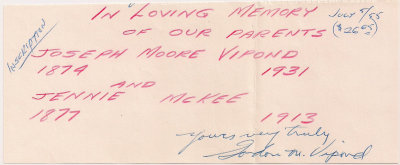 Inscription
IN LOVING MEMORY
OF OUR PARENTS
JULY 8/55
($26.65)
JOSEPH MOORE VIPOND
1874 1931
AND
JENNIE MCKEE
1877 1913
Yours very truly
Gordon M. Vipond